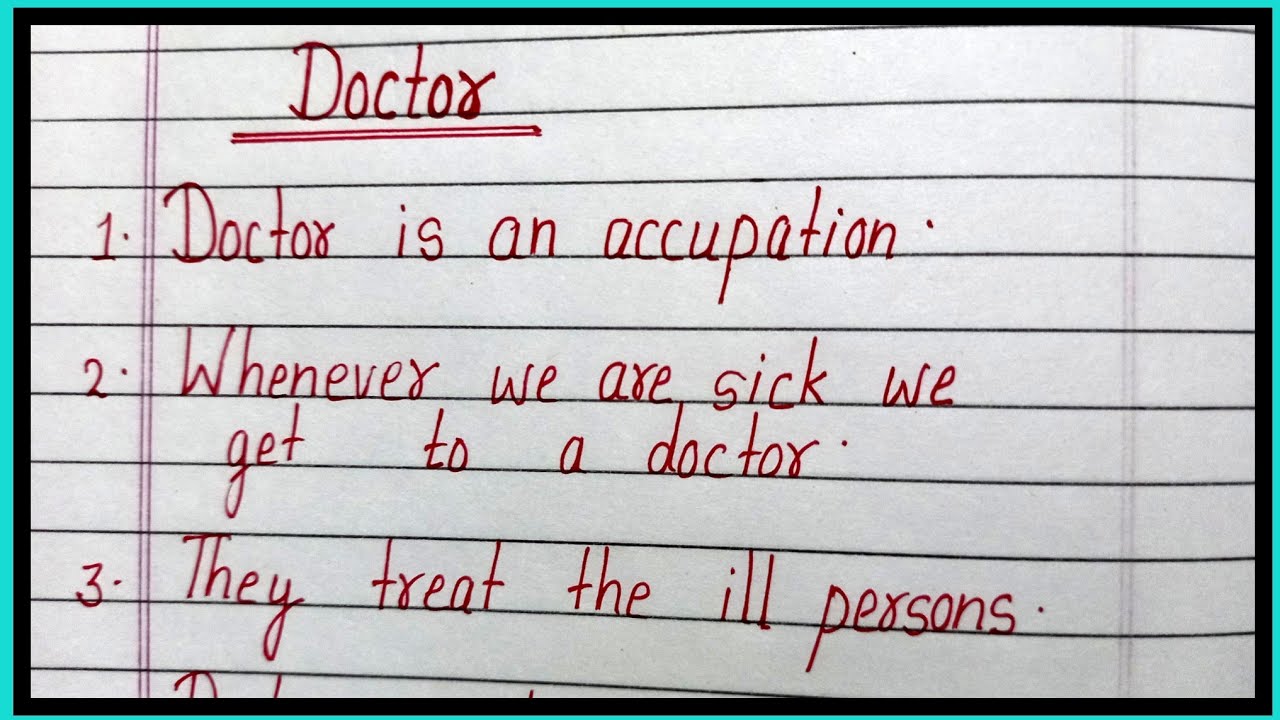 Doctor
1. Doctor is an accupation.
2. Whenever we are sick we
get to a doctor.
3. They treat the ill persons.